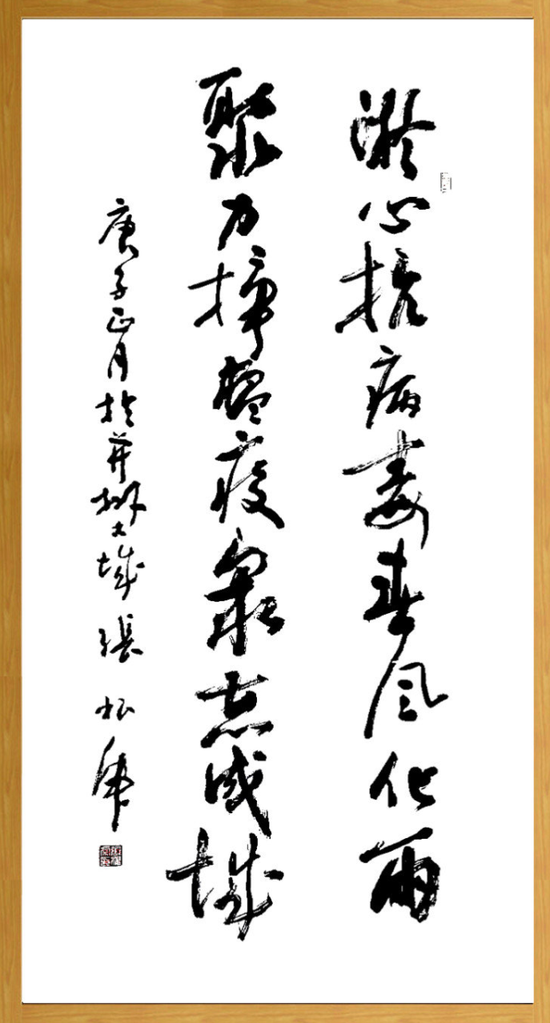 凝心抗病毒春风化雨
聚力瘟疫众志成城
庚子正月於并城張松